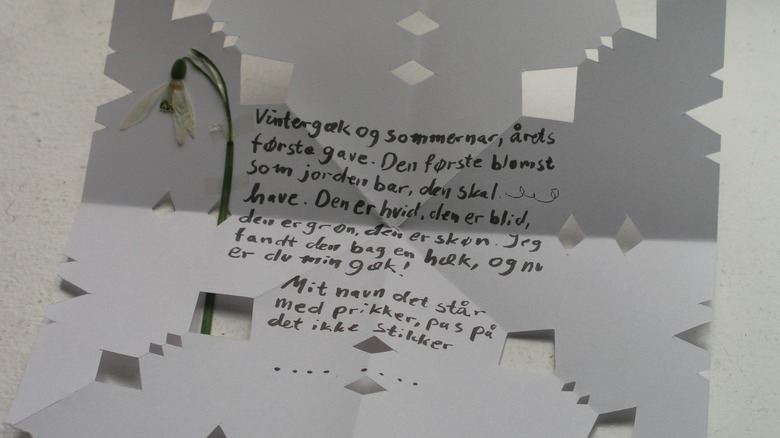 Vintergæk og sommernar, årets
første gave. Den første blomst
som jorden bar, den skal
have. Den er hvid, den er blid,
den er grøn, den er skøn. Jeg
fandt den bag en hæk, og nu
er du min gæk!
Mit navn det står
med prikker, pas på
det ikke stikker
. . . . . . . . . . .